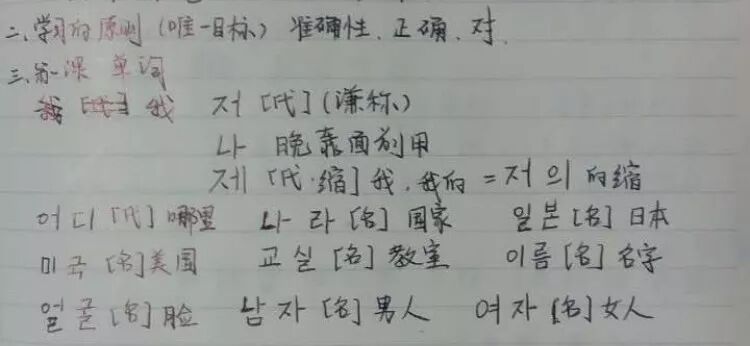 二、学习的原则(唯一目标)准确性、正确、对、
三、第一课 单词
我 저 [代](谦称、)
나 晚辈面前用
제 [代·缩] 我,我的 = 저의 的缩
어디 [代] 哪里 나라 [名] 国家 일본 [名] 日本
미국 [名] 美国 교실 [名] 教室 이름 [名] 名字
얼굴 [名] 脸 남자 [名] 男人 여자 [名] 女人